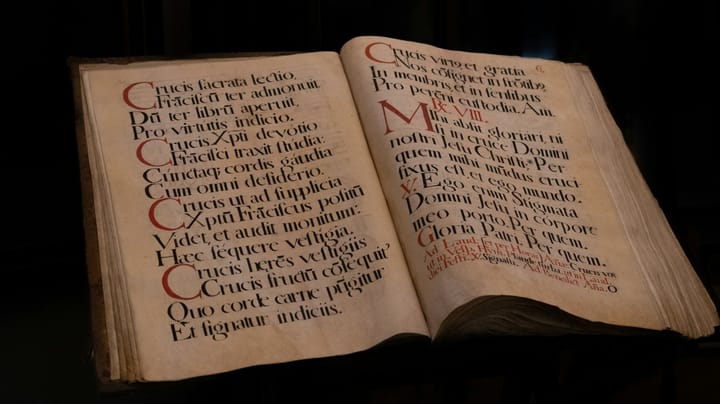 Crucis ſacrata lectio,
Frãciſcũ ter admonuit
Dũ ter librũ aperuit,
Pro virtutis indicio.
Crucis Xpti devotio
Frãciſci traxit ſtudia:
Cũctaq; cordis gaudia
Cum omni deſiderio.
Crucis ut ad ſupplicia
Xptũ Frãciſcus poſitũ
Videt, et audit monitum:
Hæc ſequere veſtigia.
Crucis heres veſtigiis
Crucis fructũ cõſequit'
Quo corde carne pũgitur
Et ſignatur indiciis.
6.
Crucis et gratia
Nos cõſignet in frõtibꝰ
In membris, et in ſenſibus
Pro perẽni cuſtodia. Am.
VIII.
Mihi abſit gloriari, ni
ſi in cruce Domini
noſtri Jeſu Chriſti,* Per
quem mihi mũdus cruci-
fixus eſt, et ego mundo.
℣. Ego enim Stigmata
Domini Jeſu in corpore
meo porto. Per quem.
Gloria Patri: Per quem.
Ad Laud.